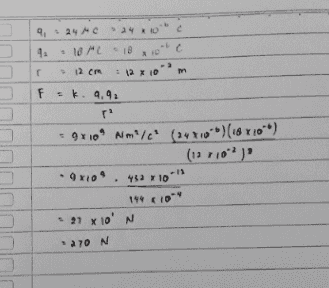 q₁ = 24 μC = 24 x 10⁻⁶ C
q₂ = 18 μC = 18 x 10⁻⁶ C
r = 12 cm = 12 x 10⁻² m
F = k . q₁q₂
r²
= 9x10⁹ Nm²/c² (24x10⁻⁶)(18x10⁻⁶)
(12 x 10⁻²)²
= 9x10⁹ . 432 x 10⁻¹²
144 x 10⁻⁴
= 27 x 10¹ N
= 270 N